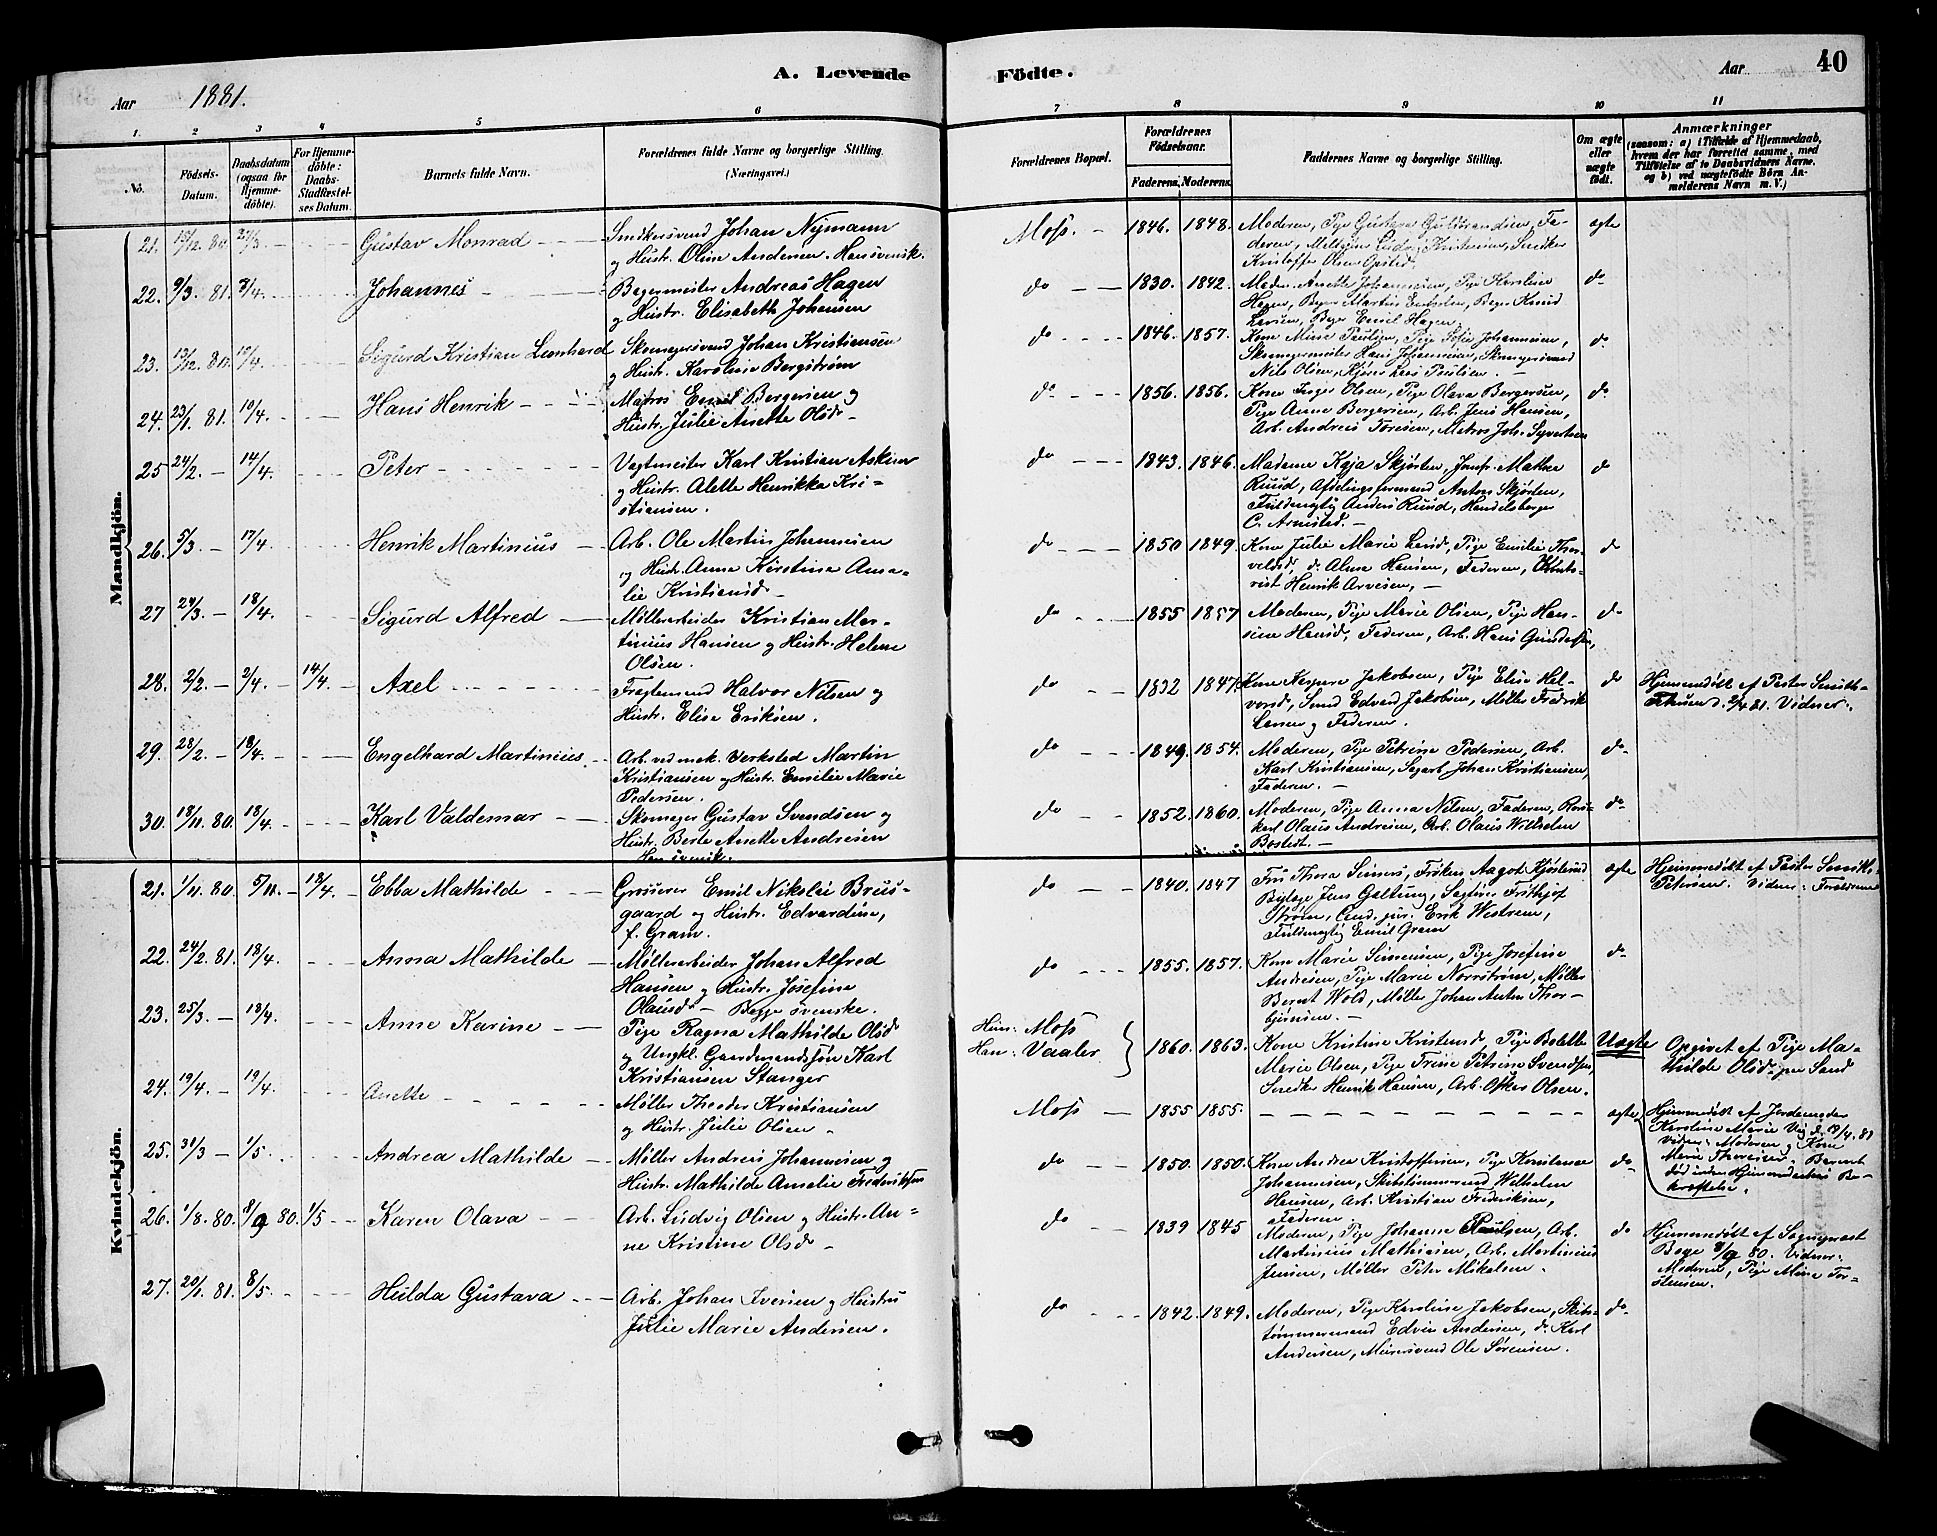 A. Levende Födte.
Aar 1881.
Aar 40
1. 2 3 4 5 6 7 8 9 10 11
No.
Födsels-
Datum.
Daabsdatum
(ogsaa for
Hjemme-
döbte).
For Hjemme-
döbte:
Daabs-
Stadfæstel-
ses Datum.
Barnets fulde Navn.
Forældrenes fulde Navne og borgerlige Stilling.
(Næringsvei.)
Forældrenes Bopæl.
Forældrenes
Födselsaar.
Faderens. Moderens.
Faddernes Navne og borgerlige Stilling.
Om ægte
eller
uægte
födt.
Anmærkninger
(saasom: a) i Tilfælde af Hjemmedaab,
hvem der har forrettet samme, med
Tilföielse af to Daabsvidners Navne,
og b) ved uægtefödte Börn An-
melderens Navn m. V.)
Mandkjön.
21. 18/12 80. 27/3 Gustav Monrad
Snedkersvend Johan Nymann
og Hustr. Oline Andersen. Hans svensk.
Moss. 1846. 1848. Moderen, Pige Gustava Guldbrandsen, Fa-
deren,
Kristoffer Olsen Opsted.
ægte
22. 9/3. 81. 3/4. Johannes
Bagermester Andreas Hagen
og Hustr. Elisabeth Johansen
do 1830. 1842. Madm. Anette Johannesen, Pige Karoline
Hagen, Bager Martin Bager Knud
Larsen, Bager Emil Hagen.
do
23. 13/12. 80. 17/4. Sigurd Kristian Leonhard
Skomagersvend Johan Kristiansen
og Hustr. Karoline Bergstrøm
do 1846. 1857. Kone Mine Paulsen, Pige Sofie Johannesen,
Skomagermester Hans Johannesen, Skomagersvend
Nils Olsen, Lars Paulsen.
do
24. 23/1. 81. 10/4. Hans Henrik
Matros Emil Bergersen og
Hustr. Julie Anette Olsd.
do 1856. 1856. Kone Inger Olsen, Pige Olava Bergersen,
Pige Anne Bergersen, Arb. Jens Hansen,
Arb. Andreas Toresen, Matros Joh. Syvertsen
do
25 24/2. 14/4. Peter
Vagtmester Karl Kristian Askim
og Hustr. Alette Henrikka Kri-
stiansen.
do 1843. 1846. Madame Kaja Skjørten, Jomfr. Mathea
Ruud, Afdelingsformand Anton Skjørten,
Fuldmægtig Anders Ruud, Handelsborger
C. Arnsted.
do
26. 5/3. 17/4. Henrik Martinius
Arb. Ole Martin Johannesen
og Hustr. Anna Kirstine Ama-
lie Kristiansd.
do 1850 1849 Kone Julie Marie Larsd, Pige Emilie Thor-
valdsd, do Alma Hansen, Faderen,
Henrik Arvesen,
do
27 24/3. 18/4. Sigurd Alfred
Møllerarbeider Kristian Mar-
tinius Hansen og Hustr. Helene
Olsen.
do 1855 1857 Moderen, Pige Marie Olsen, Pige Han-
sine Hansd, Faderen, Arb. Hans Gundersen,
do
28. 2/2. 2/4. 14/4. Axel
Fragtemand Halvor Nilsen og
Hustr. Elise Eriksen.
do 1832 1847 Kone Jakobsen, Pige Elise Hal-
vorsd, Smed Edvard Jakobsen, Møller Fredrik
Larsen og Faderen.
do Hjemmedøbt af Pastor Smith-
Petersen d. 2/4 81. Vidner:
29. 28/2. 18/4. Engelhard Martinius
Arb. ved mek. Verksted Martin
Kristiansen og Hustr. Emilie Marie
Pedersen.
do 1849. 1854. Moderen, Pige Petrine Pedersen, Arb.
Karl Kristiansen, Sagarb. Johan Kristiansen,
Faderen.
do
30. 18/11. 80. 18/4. Karl Valdemar
Skomager Gustav Svendsen og
Hustr. Berte Anette Andresen
Han svensk.
do 1852. 1860. Moderen, Pige Anna Nilsen, Faderen,
Olaus Andresen, Arb. Olaus Wilhelm
Bostedt.
do
Kvindekjön.
21. 1/11. 80. 5/11. 18/4. Ebba Mathilde
Grosserer Emil Nikolai Brus-
gaard og Hustr. Edvardine,
f. Gram.
do 1840. 1847 Fru Thora Frøken Aagot
Jens Galtung, Frithjof
Strøm, Cand. jur. Erik Westrem,
Fuldmægtig Emil Gram
ægte Hjemmedøbt af Pastor Smith-
Petersen. Vidner: Forældrene
22. 24/2. 81. 18/4. Anna Mathilde
Møllerarbeider Johan Alfred
Hansen og Hustr. Josefine
Olausd. Begge svenske.
do 1855. 1857. Kone Marie Simensen, Pige Josefine
Andresen, Pige Marie Norrstrøm, Møller
Bernt Wold, Møller Johan Anton Thor-
bjørnsen.
do
23. 25/3. 18/4. Anne Karine
Pige Ragna Mathilde Olsd
og Ungkl. Gaardmandssøn Karl
Kristiansen Stanger
Hun: Moss
Han: Vaaler
1860. 1863. Kone Kristine Kristensd, Pige Bolette
Marie Olsen, Pige Petrine Svendsen,
Snedker Henrik Hansen, Arb. Oskar Olsen.
Uægte Opgivet af Pige Ma-
thilde Olsd. pr Smd
24. 19/4. 19/4. Anette
Møller Theodor Kristiansen
og Hustr. Julie Olsen.
Moss 1855 1855.
ægte Hjemmedøbt af Jordemoder
Karoline Marie Vig d. 19/4. 81
Vidner: Moderen og Kone
Marie Thoresen. Barnet
død inden Hjemmedaabens Be-
kræftelse.
25. 31/3 1/5. Andrea Mathilde
Møller Andreas Johannesen og
Hustr. Mathilde Amalie Frederiksen
do 1850. 1850. Kone Andrea Kristoffersen, Pige Konstanse
Johannesen, Skibstømmermand Wilhelm
Hansen, Arb. Kristian Frederiksen,
Faderen
do
26. 1/8. 80. 8/9 80. 1/5 Karen Olava
Arb. Ludvig Olsen og Hustr. An-
ne Kristine Olsd.
do 1839 1845 Moderen, Pige Johanne Paulsen, Arb.
Martinius Mathisen, Arb. Martinius
Jensen, Møller Peter Mikalsen.
do Hjemmedøbt af Sogneprest
Bøge 8/9 80. Vidner:
Moderen, Pige Mina Tor-
stensen.
27. 20/1. 81. 8/5. Hulda Gustava
Arb. Johan Iversen og Hustru
Julie Marie Andersen.
do 1842. 1849. Moderen, Pige Karoline Jakobsen, Skibs-
tømmermand Edvin Andersen, do Karl
Andersen, Murersvend Ole Sørensen.
do